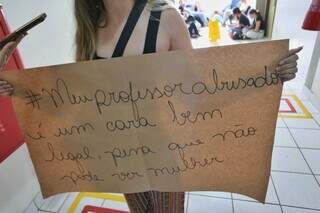 #Meu professor abusador
é um cara bem
legal, pena que não
pode ver mulher